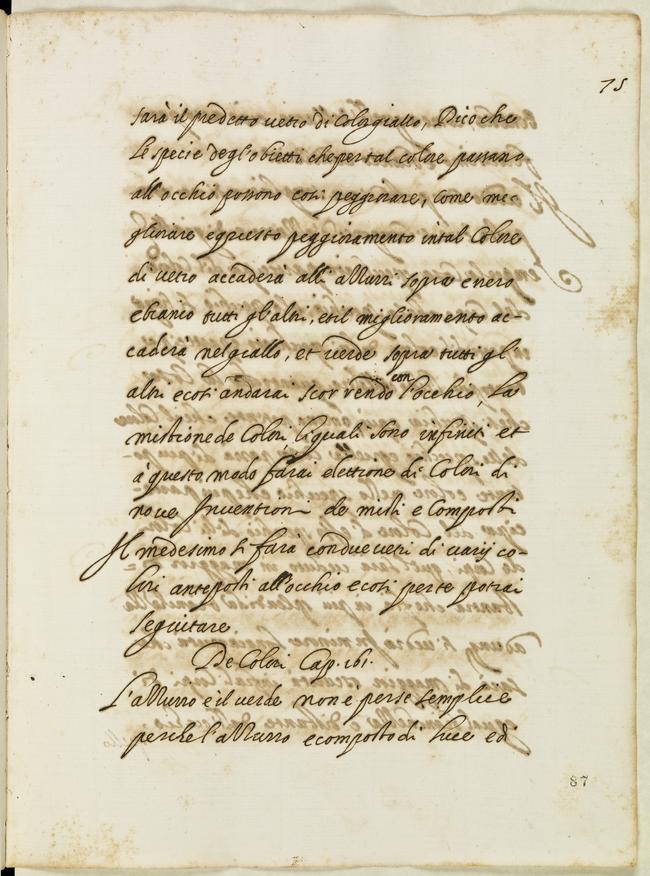 75
sarà il predetto uetro di Color giallo, Dico che
le specie degl'obietti che per tal colore passano
all'occhio possono cosi peggiorare, come mi-
gliorare e questo peggioramento in tal Colore
di uetro accaderà alli azzurri sopra e nero
e bianco tutti gl'altri, et il miglioramento ac-
caderà nel giallo, et uerde sopra tutti gl'
altri e cosi andarai scorrendo con l'occhio, la
mistione de Colori, li quali sono infiniti et
à questo modo farai elettione di Colori di
noue Inuentioni de misti e Composti
Il medesimo si farà con due uetri di uarij co-
lori anteposti all'occhio e cosi per te potrai
seguitare
De Colori Cap. 161.
L'azzurro e il uerde non è per se semplice
perche l'azzurro e composto di luce e di
87